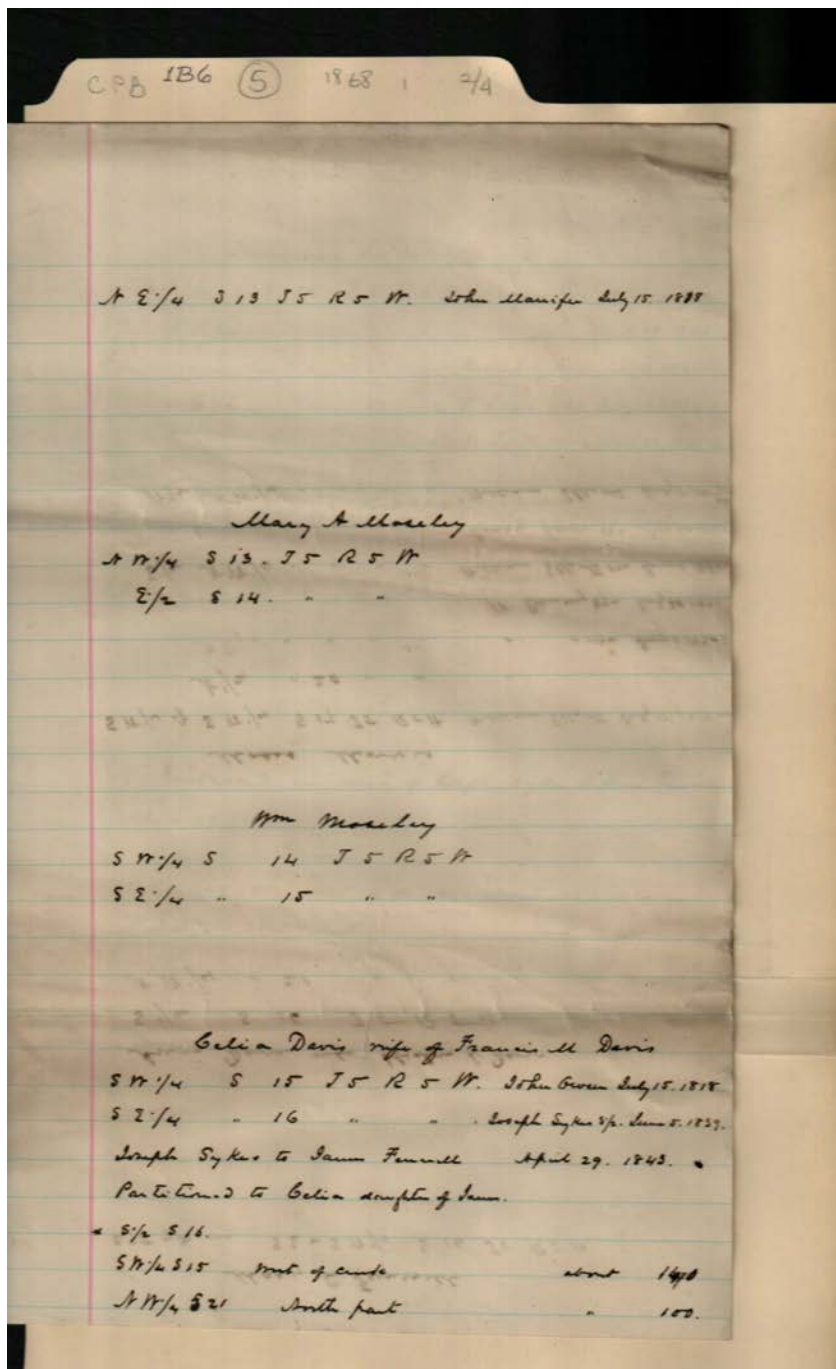 CPB 1B6 (5) 1868 2/4
N E 1/4 S 13 T 5 R 5 W. John July 15. 1818
Mary A Moseley
N W 1/4 S 13. T 5 R 5 W
E 1/2 S 14. " "
Wm Moseley
S W 1/4 S 14 T 5 R 5 W
S E 1/4 " 15 " "
Celia Davis wife of Francis M Davis
S W 1/4 S 15 T 5 R 5 W. John July 15. 1818
S E 1/4 " 16 " " Joseph Sykes S 1/2. June 5. 1839.
Joseph Sykes to James Fennell April 29. 1843.
Partitioned to Celia daughter of James.
S 1/2 S 16.
S W 1/4 S 15 west of creek about
N W 1/4 S 21 North part " 100.